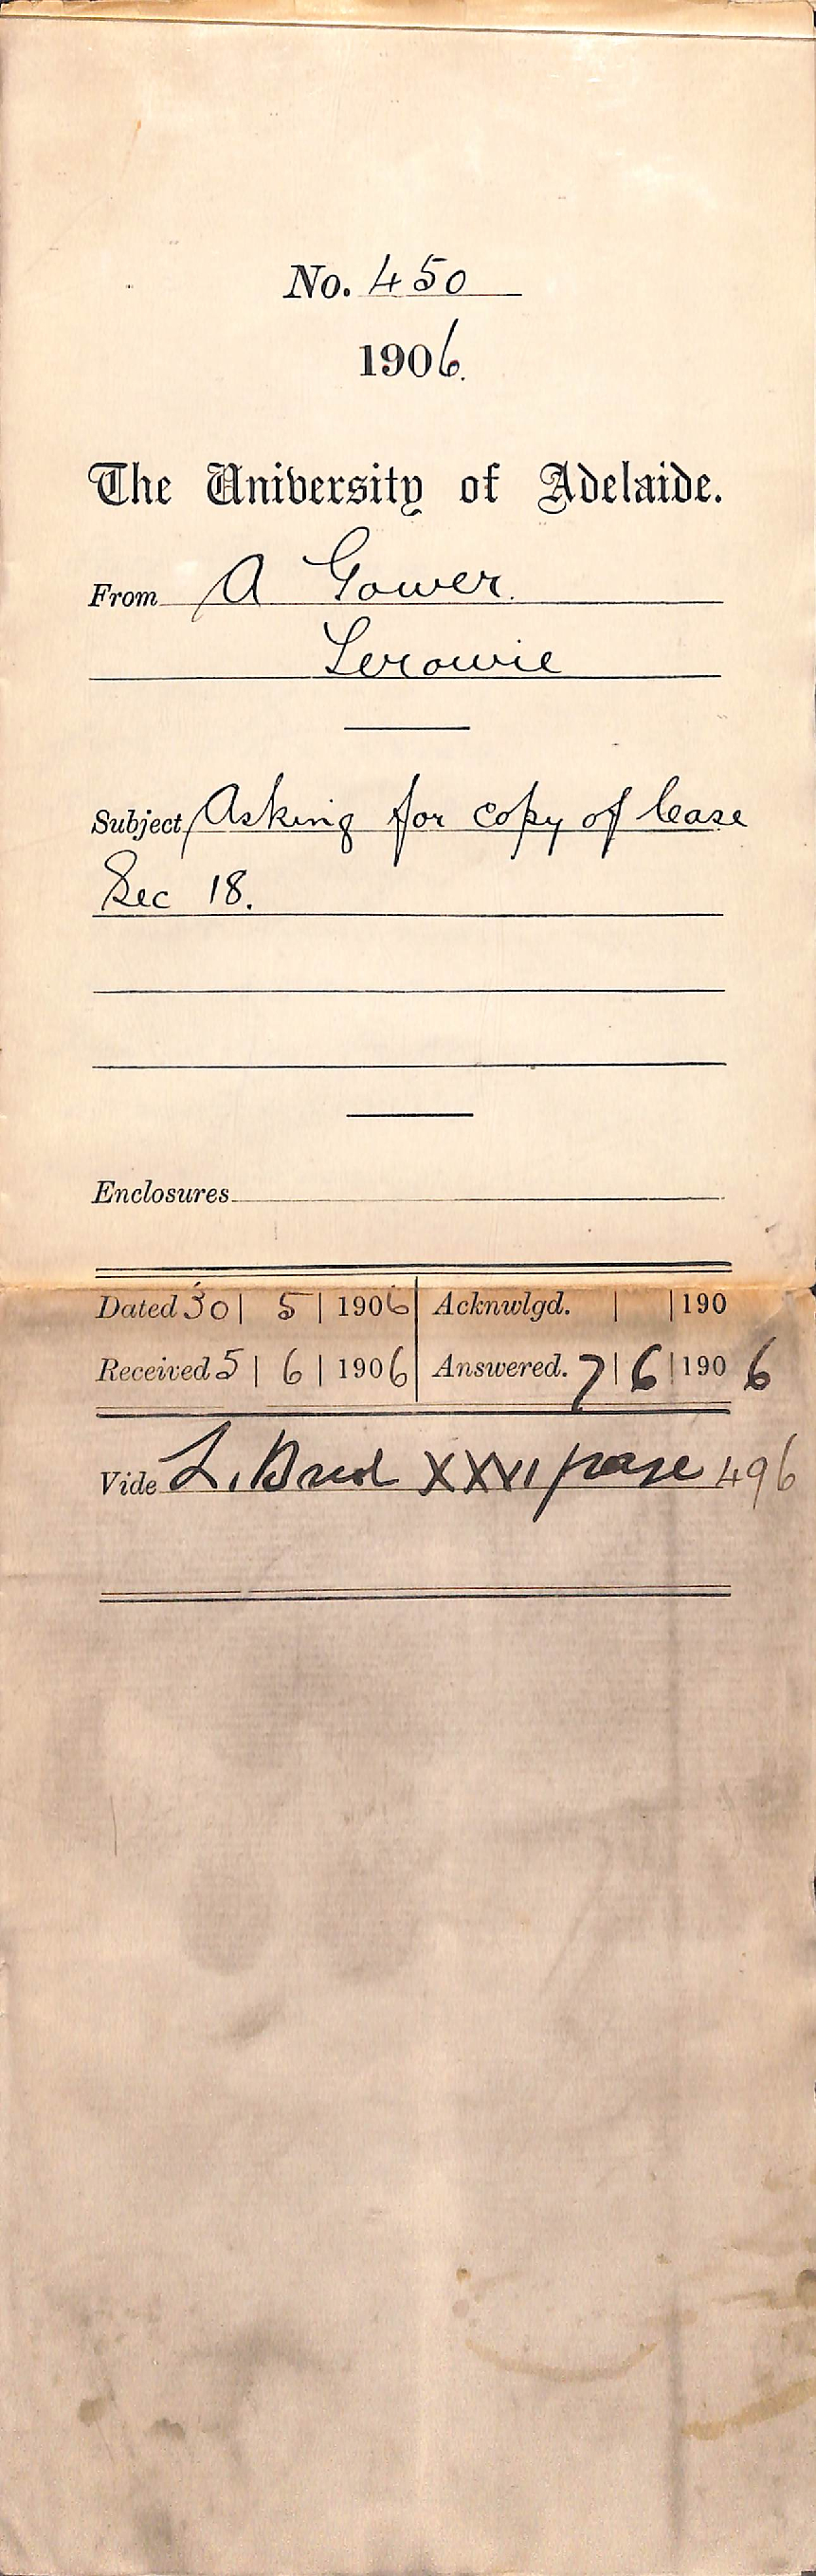 No. 450
1906.
The University of Adelaide.
From A Gower.
Terowie
Subject Asking for copy of lease
Sec 18.
Enclosures
Dated 30 | 5 | 1906 Acknwlgd. | | 190
Received 5 | 6 | 1906 Answered. 7 | 6 | 190 6
Vide L. Book XXVI page 496